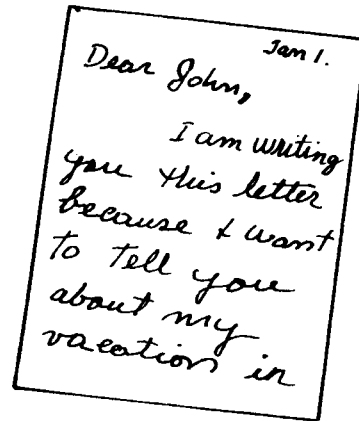 Jan 1.
Dear John,
I am writing
you this letter
because I want
to tell you
about my
vacation in